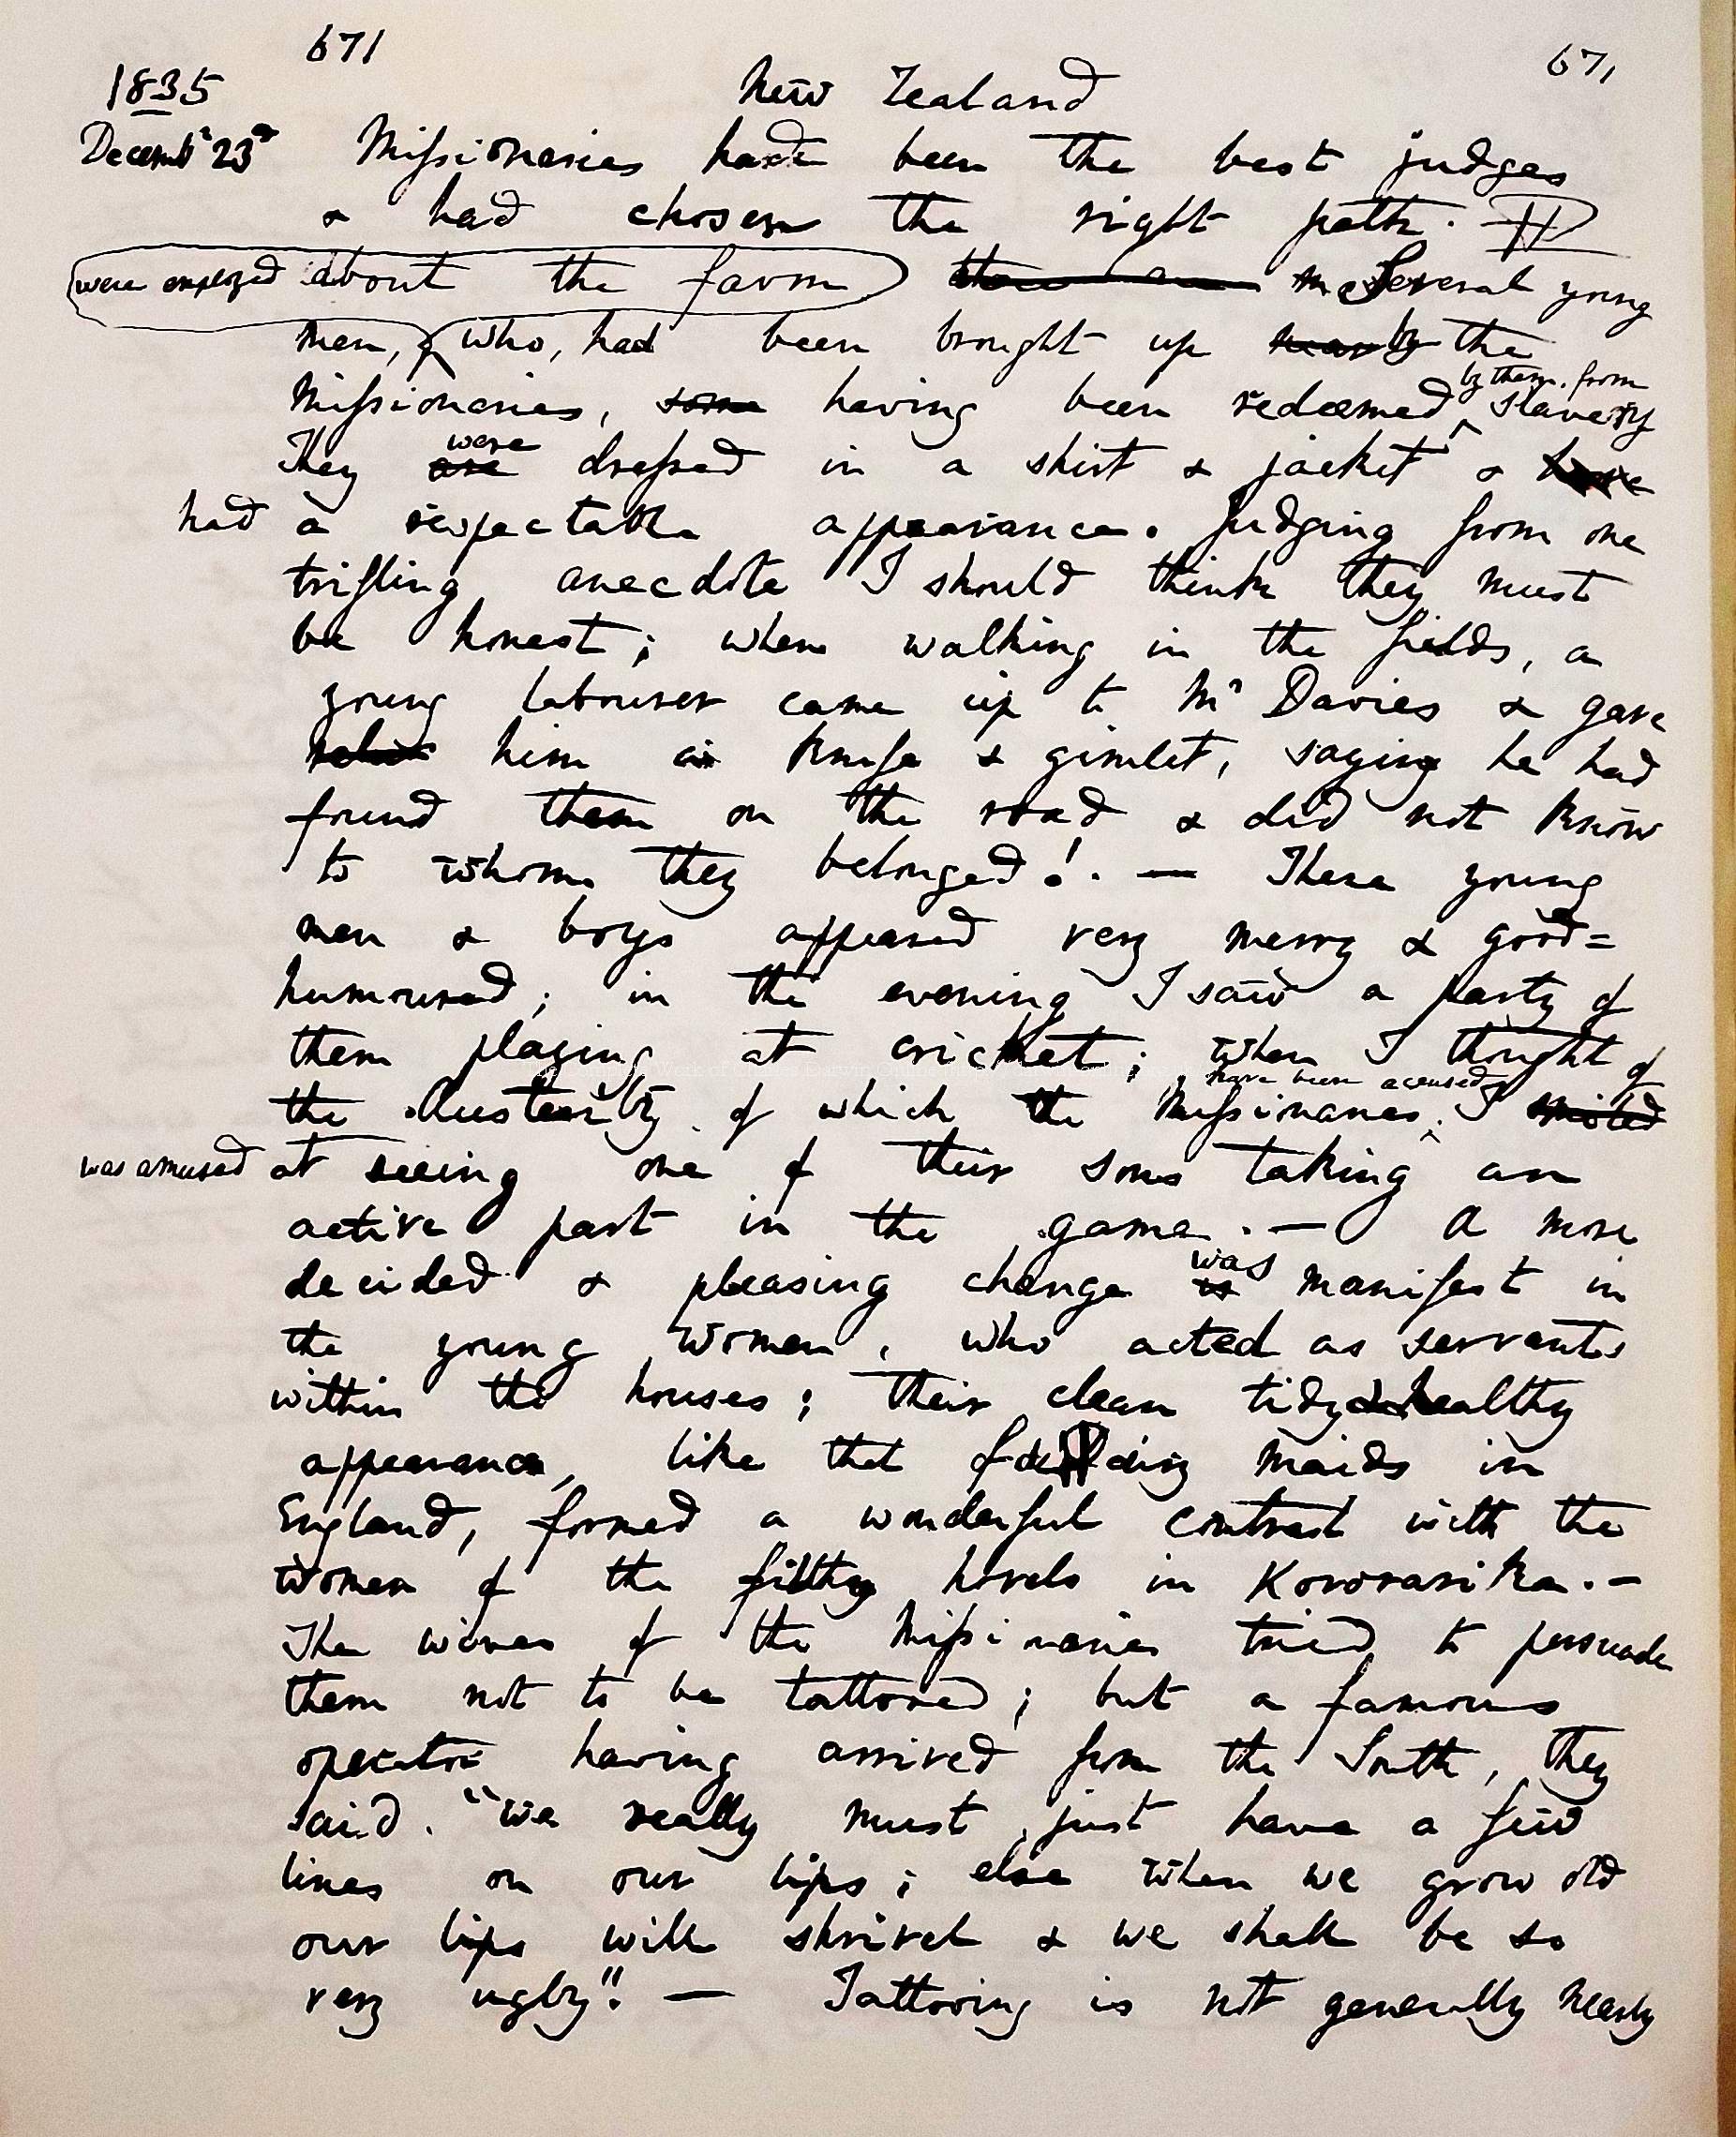 671
671
1835
New Zealand
Decemb 23d Missionaries had been the best judges
& had chosen the right path.
were employed about the farm Several young
men, & who, had been brought up by the
Missionaries, some having been redeemed by them from slavery
They are were dressed in a shirt & jacket & have
had a respectable appearance. Judging from one
trifling anecdote I should think they must
be honest; when walking in the fields, a
young labourer came up to Mr Davies & gave
him a knife & gimlet, saying he had
found them on the road & did not know
to whom they belonged!. — These young
men & boys appeared very merry & good=
humoured; in the evening I saw a party of
them playing at cricket; when I thought of
the Austerity of which the Missionaries have been accused, I smiled
was amused at seeing one of their sons taking an
active part in the game. — A more
decided & pleasing change is was manifest in
the young women, who acted as servants
within the houses; their clean tidy & healthy
appearance, like that of maids in
England, formed a wonderful contrast with the
women of the filthy hovels in Kororarika. –
The wives of the Missionaries tried to persuade
them not to be tattooed; but a famous
operator having arrived from the South, they
said. "we really must just have a few
lines on our lips; else when we grow old
our lips will shrivel & we shall be so
very ugly". — Tattooing is not generally nearly